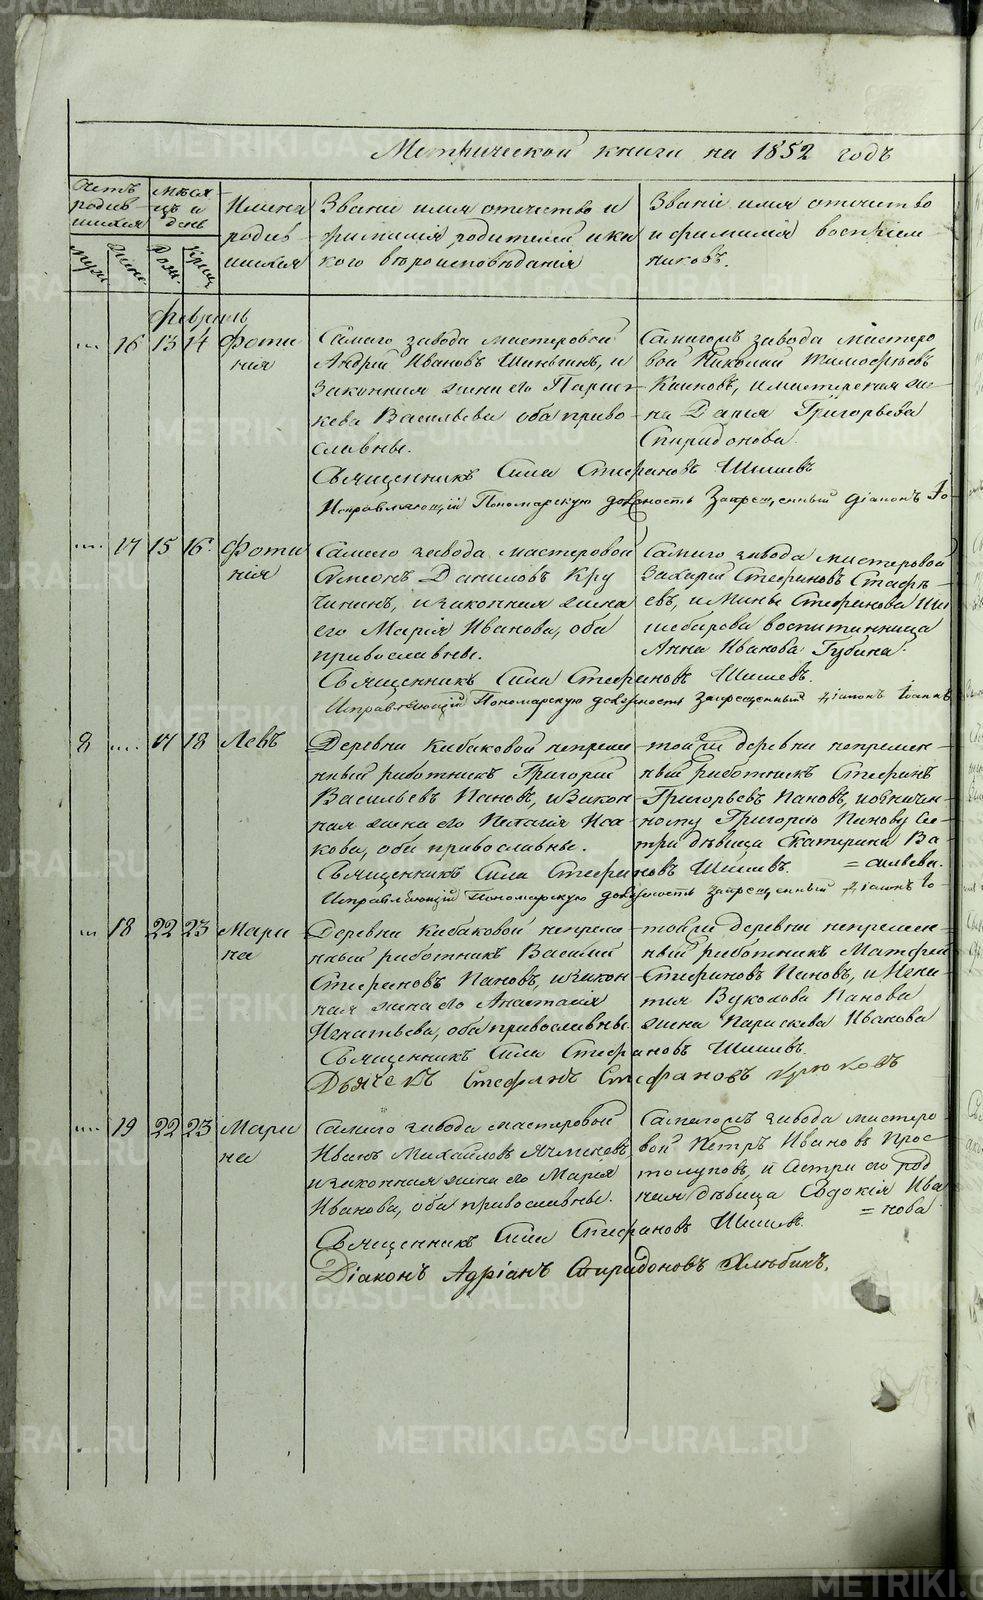 METRIKI.GASO-URAL.RU
Метрической книги на 1852 годъ
Счетъ родив-шихся
мѣся-цъ и день
Имена родив-шихся
Званіе имя отчество и фамилія родителей и ка-кого вѣроисповѣданія
Званіе имя отчество и фамилія воспріем-никовъ.
муж.
жен.
Рожд.
Крещ.
Февраль
16 13 14 Фоти-нія
Самаго завода мастеровой
Андрей Ивановъ, и
законная жена его Параск-
кева Васильева оба право-
славные.
Самагожъ завода мастеро-
вой Николай Тимофѣевъ
и мастерская же-
на Дарья Григорьева
Спиридонова.
Священникъ Сила Стефановъ Шишевъ
Исправляющій Пономарскую должность Запрещенный діаконъ Іо-
17 15 16 Фоти-нія
Самаго завода мастеровой
Симеонъ Даниловъ Кру-
чининъ, и законная жена
его Марія Иванова, оба
православные.
Самаго завода мастеровой
Захарій Стефановъ
и Мины Стефанова
воспитанница
Анна Иванова Губина.
Священникъ Сила Стефановъ Шишевъ.
Исправляющій Пономарскую должность Запрещенный діаконъ Іоаннъ
8 17 18 Левъ
Деревни Кабаковой непреме-
нный работникъ Григорій
Васильевъ Пановъ, и закон-
ная жена его Пелагія Иса-
кова, оба православные.
той же деревни непремен-
ный работникъ Стефанъ
Григорьевъ Пановъ, и означен-
ному Григорію Панову се-
тра дѣвица Екатерина Ва-
=сильева.
Священникъ Сила Стефановъ Шишевъ.
Исправляющій Пономарскую должность Запрещенный діаконъ Іо-
18 22 23 Мари-на
Деревни Кабаковой непреме-
нный работникъ Василій
Стефановъ Пановъ, и закон-
ная жена его Анастасія
Игнатьева, оба православные
той же деревни непремен-
ный работникъ Матфей
Стефановъ Пановъ, и Игна-
тія Вуколова Панова
жена Параскева Иванова
Священникъ Сила Стефановъ Шишевъ.
Дьячекъ Стефанъ Стефановъ Крюковъ
19 22 23 Мари-на
Самаго завода мастеровой
Иванъ Михайловъ Ячменевъ,
и законная жена его Марія
Иванова, оба православные.
Самагожъ завода мастеро-
вой Петръ Ивановъ Прос-
толуповъ, и сестра его род-
ная дѣвица Евдокія Ива-
=нова
Священникъ Сила Стефановъ Шишевъ.
Діаконъ Адріанъ Спиридоновъ Хлѣбинъ.